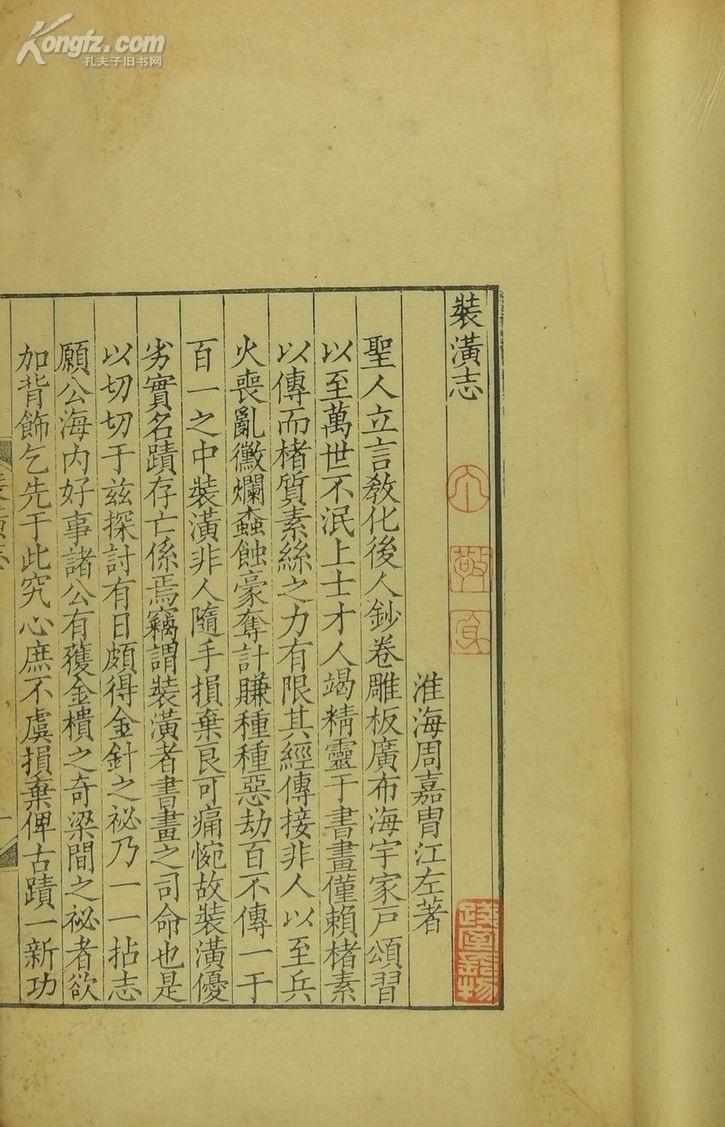 Kongfz.com
孔夫子旧书网
裝潢志
淮海周嘉胄江左著
聖人立言敎化後人鈔卷雕板廣布海宇家戸頌習
以至萬世不泯上士才人竭精靈于書畫僅賴楮素
以傳而楮質素絲之力有限其經傳接非人以至兵
火喪亂黴爛蟲蝕豪奪計賺種種惡劫百不傳一于
百一之中裝潢非人隨手損棄良可痛惋故裝潢優
劣實名蹟存亡係焉竊謂裝潢者書畫之司命也是
以切切于兹探討有日頗得金針之祕乃一一拈志
願公海内好事諸公有獲金樻之奇梁間之祕者欲
加背飾乞先于此究心庶不虞損棄俾古蹟一新功